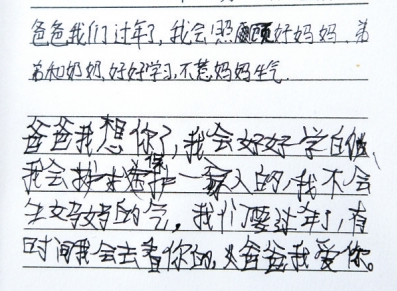 爸爸我们过年了,我会照顾好妈妈、弟
弟和奶奶,好好学习,不惹妈妈生气.
爸爸我想你了,我会好好学自,
我会保一家人的,我不会
生妈妈的气。我们要过年了,有
时间我会去看你的,爸爸我爱你。